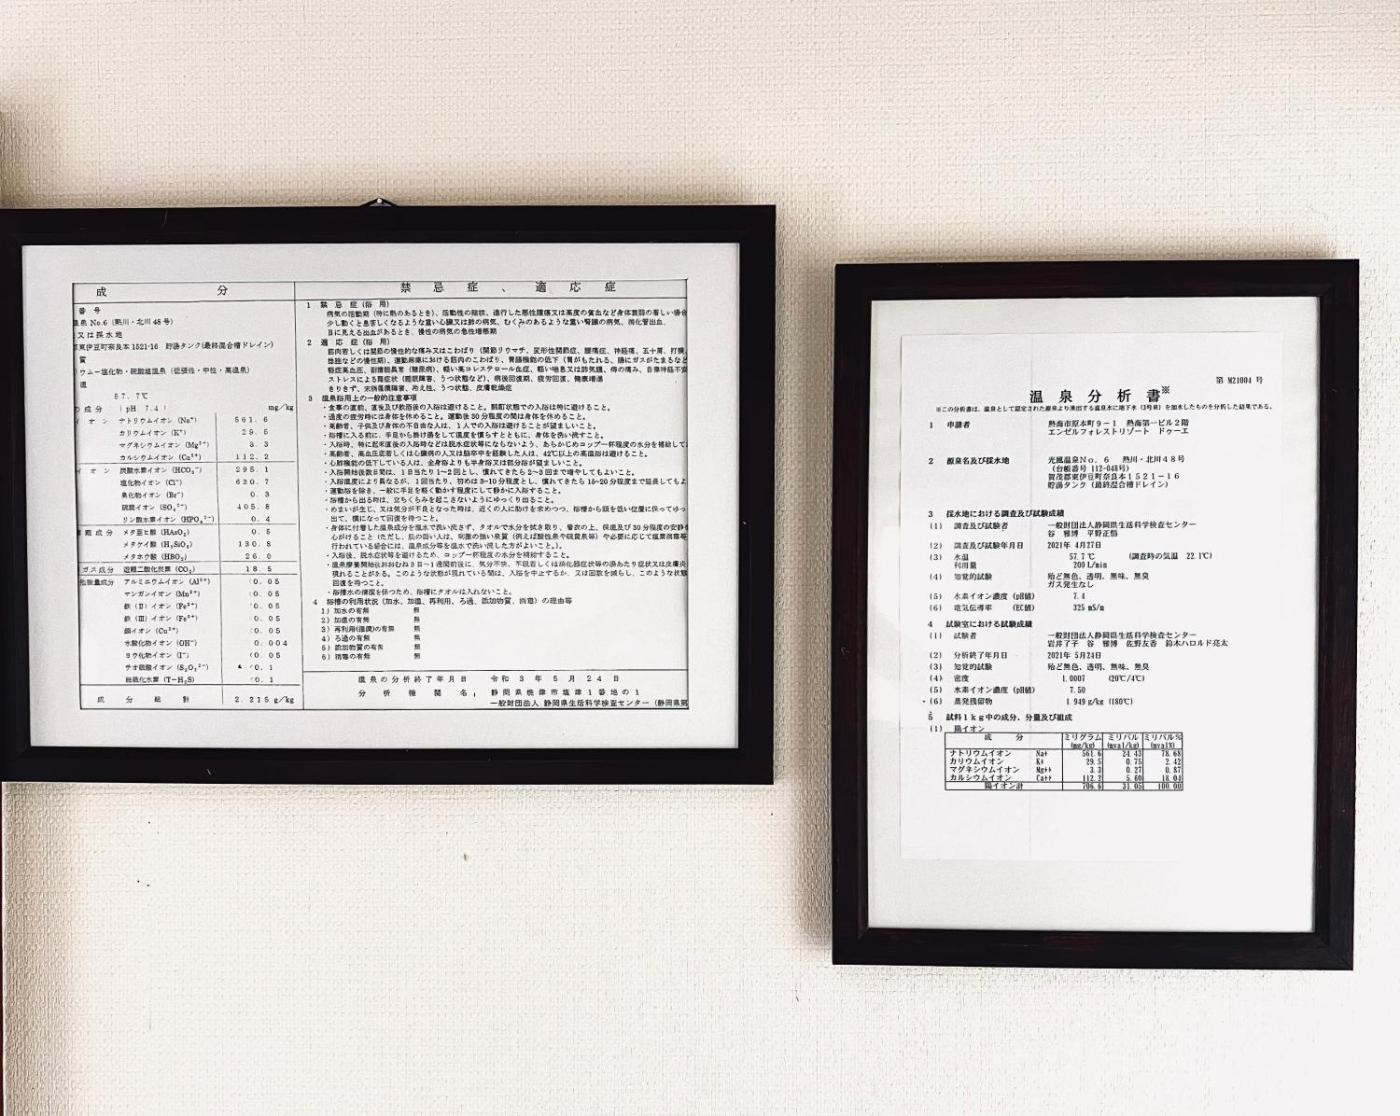 成 分
番 号
温泉 No.6 (熱川・北川 48 号)
又は採水地
東伊豆町奈良本 1521-16 貯湯タンク(最終混合槽ドレイン)
質
ウム－塩化物・硫酸塩温泉 (低張性・中性・高温泉)
温
57. 7℃
成分 ( pH 7.4 ) mg/kg
イオン ナトリウムイオン (Na⁺) 561. 6
カリウムイオン (K⁺) 29. 5
マグネシウムイオン (Mg²⁺) 3. 3
カルシウムイオン (Ca²⁺) 112. 2
イオン 炭酸水素イオン (HCO₃⁻) 295. 1
塩化物イオン (Cl⁻) 630. 7
臭化物イオン (Br⁻) 0. 3
硫酸イオン (SO₄²⁻) 405. 8
リン酸水素イオン (HPO₄²⁻) 0. 4
離成分 メタ亜ヒ酸 (HAsO₂) 0. 5
メタケイ酸 (H₂SiO₃) 130. 8
メタホウ酸 (HBO₂) 26. 0
ガス成分 遊離二酸化炭素 (CO₂) 18. 5
他微量成分 アルミニウムイオン (Al³⁺) <0. 05
マンガンイオン (Mn²⁺) <0. 05
鉄 (II) イオン (Fe²⁺) <0. 05
鉄 (III) イオン (Fe³⁺) <0. 05
銅イオン (Cu²⁺) <0. 05
水酸化物イオン (OH⁻) 0. 004
ヨウ化物イオン (I⁻) <0. 05
チオ硫酸イオン (S₂O₃²⁻) <0. 1
総硫化水素 (T－H₂S) <0. 1
成 分 総 計 2. 215 g/kg
禁 忌 症 、 適 応 症
1 禁 忌 症 (浴 用)
病気の活動期 (特に熱のあるとき)、活動性の結核、進行した悪性腫瘍又は高度の貧血など身体衰弱の著しい場合
少し動くと息苦しくなるような重い心臓又は肺の病気、むくみのあるような重い腎臓の病気、消化管出血、
目に見える出血があるとき、慢性の病気の急性増悪期
2 適 応 症 (浴 用)
筋肉若しくは関節の慢性的な痛み又はこわばり (関節リウマチ、変形性関節症、腰痛症、神経痛、五十肩、打撲、
捻挫などの慢性期)、運動麻痺における筋肉のこわばり、胃腸機能の低下 (胃がもたれる、腸にガスがたまるなど
軽症高血圧、耐糖能異常 (糖尿病)、軽い高コレステロール血症、軽い喘息又は肺気腫、痔の痛み、自律神経不安
ストレスによる諸症状 (睡眠障害、うつ状態など)、病後回復期、疲労回復、健康増進
きりきず、末梢循環障害、冷え性、うつ状態、皮膚乾燥症
3 温泉浴用上の一般的注意事項
・食事の直前、直後及び飲酒後の入浴は避けること。酩酊状態での入浴は特に避けること。
・過度の疲労時には身体を休めること。運動後 30 分程度の間は身体を休めること。
・高齢者、子供及び身体の不自由な人は、1 人での入浴は避けることが望ましいこと。
・浴槽に入る前に、手足から掛け湯をして温度を慣らすとともに、身体を洗い流すこと。
・入浴時、特に起床直後の入浴時などは脱水症状等にならないよう、あらかじめコップ一杯程度の水分を補給して
・高齢者、高血圧症若しくは心臓病の人又は脳卒中を経験した人は、42℃以上の高温浴は避けること。
・心肺機能の低下している人は、全身浴よりも半身浴又は部分浴が望ましいこと。
・入浴開始後数日間は、1 日当たり 1～2 回とし、慣れてきたら 2～3 回まで増やしてもよいこと。
・入浴温度により異なるが、1 回当たり、初めは 3～10 分程度とし、慣れてきたら 15～20 分程度まで延長してもよ
・運動浴を除き、一般に手足を軽く動かす程度にして静かに入浴すること。
・浴槽から出る時は、立ちくらみを起こさないようにゆっくり出ること。
・めまいが生じ、又は気分が不良となった時は、近くの人に助けを求めつつ、浴槽から頭を低い位置に保ってゆっ
出て、横になって回復を待つこと。
・身体に付着した温泉成分を温水で洗い流さず、タオルで水分を拭き取り、着衣の上、保温及び 30 分程度の安静を
心がけること (ただし、肌の弱い人は、刺激の強い泉質 (例えば酸性泉や硫黄泉等) や必要に応じて塩素消毒等
行われている場合には、温泉成分等を温水で洗い流した方がよいこと。)。
・入浴後、脱水症状等を避けるため、コップ一杯程度の水分を補給すること。
・温泉療養開始後おおむね 3 日～1 週間前後に、気分不快、不眠若しくは消化器症状等の湯あたり症状又は皮膚炎
現れることがある。このような状態が現れている間は、入浴を中止するか、又は回数を減らし、このような状態
回復を待つこと。
・浴槽水の清潔を保つため、浴槽にタオルは入れないこと。
4 浴槽の利用状況 (加水、加温、再利用、ろ過、添加物質、消毒) の理由等
1) 加水の有無 無
2) 加温の有無 無
3) 再利用(循環)の有無 無
4) ろ過の有無 無
5) 添加物質の有無 無
6) 消毒の有無 無
温 泉 の 分 析 終 了 年 月 日 令 和 3 年 5 月 24 日
分 析 機 関 名 , 静 岡 県 焼 津 市 塩 津 1 番 地 の 1
一般財団法人 静岡県生活科学検査センター (静岡県
第 M21004 号
温 泉 分 析 書※
※この分析書は、温泉として認定された源泉より湧出する温泉水に地下水 (3号泉) を加水したものを分析した結果である。
1 申請者 熱海市原本町９－１ 熱海第一ビル２階
エンゼルフォレストリゾート ドゥーエ
2 源泉名及び採水地 光風温泉Ｎｏ．６ 熱川・北川４８号
(台帳番号 112-048号)
賀茂郡東伊豆町奈良本１５２１－１６
貯湯タンク (最終混合槽ドレイン)
3 採水地における調査及び試験成績
(1) 調査及び試験者 一般財団法人静岡県生活科学検査センター
谷 雅博 平野正悟
(2) 調査及び試験年月日 2021年 4月27日
(3) 水温 57.7 ℃ (調査時の気温 22.1℃)
利用量 200 L/min
(4) 知覚的試験 殆ど無色、透明、無味、無臭
ガス発生なし
(5) 水素イオン濃度 (pH値) 7.4
(6) 電気伝導率 (EC値) 325 mS/m
4 試験室における試験成績
(1) 試験者 一般財団法人静岡県生活科学検査センター
岩井了子 谷 雅博 佐野友香 鈴木ハロルド亮太
(2) 分析終了年月日 2021年 5月24日
(3) 知覚的試験 殆ど無色、透明、無味、無臭
(4) 密度 1.0007 (20℃/4℃)
(5) 水素イオン濃度 (pH値) 7.50
(6) 蒸発残留物 1.949 g/kg (180℃)
5 試料１ｋｇ中の成分、分量及び組成
(1) 陽イオン
成 分 ミリグラム ミリバル ミリバル%
(mg/kg) (mval/kg) (mval%)
ナトリウムイオン Na+ 561.6 24.43 78.68
カリウムイオン K+ 29.5 0.75 2.42
マグネシウムイオン Mg++ 3.3 0.27 0.87
カルシウムイオン Ca++ 112.2 5.60 18.04
陽イオン計 706.6 31.05 100.00